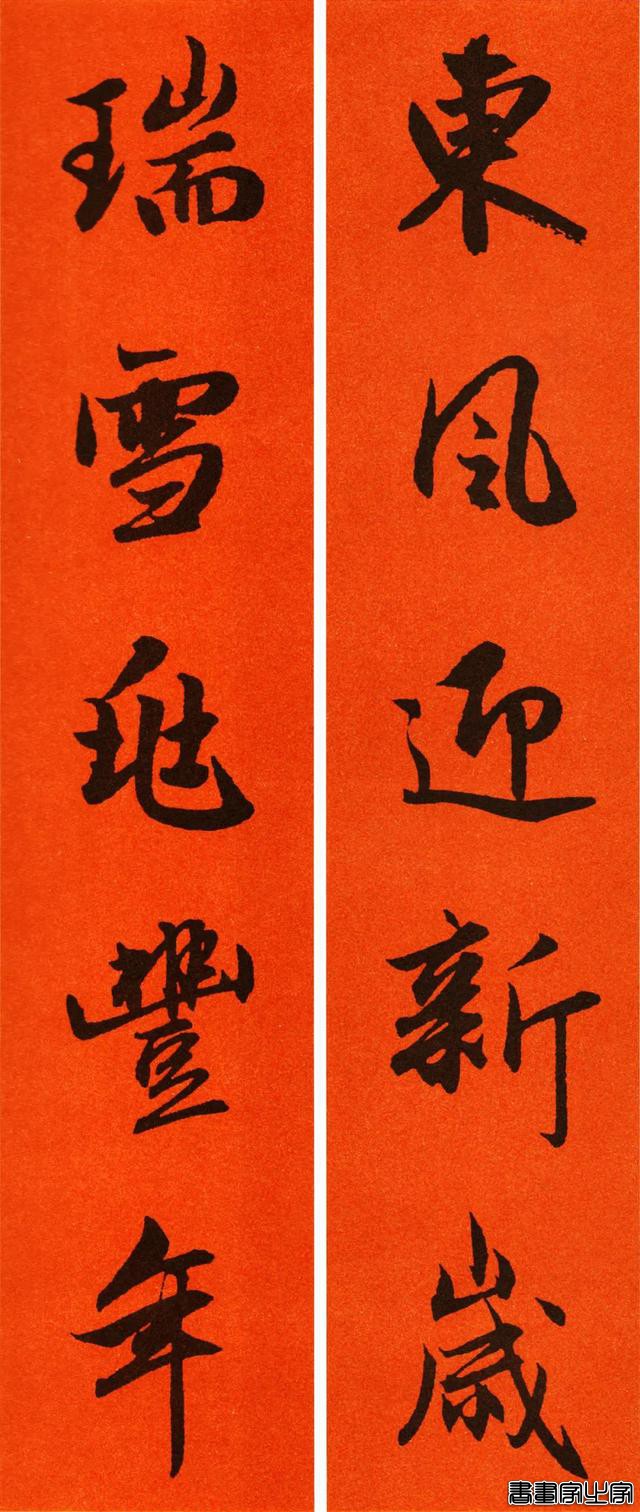 東風迎新歲
瑞雪兆豐年
書畫家之家